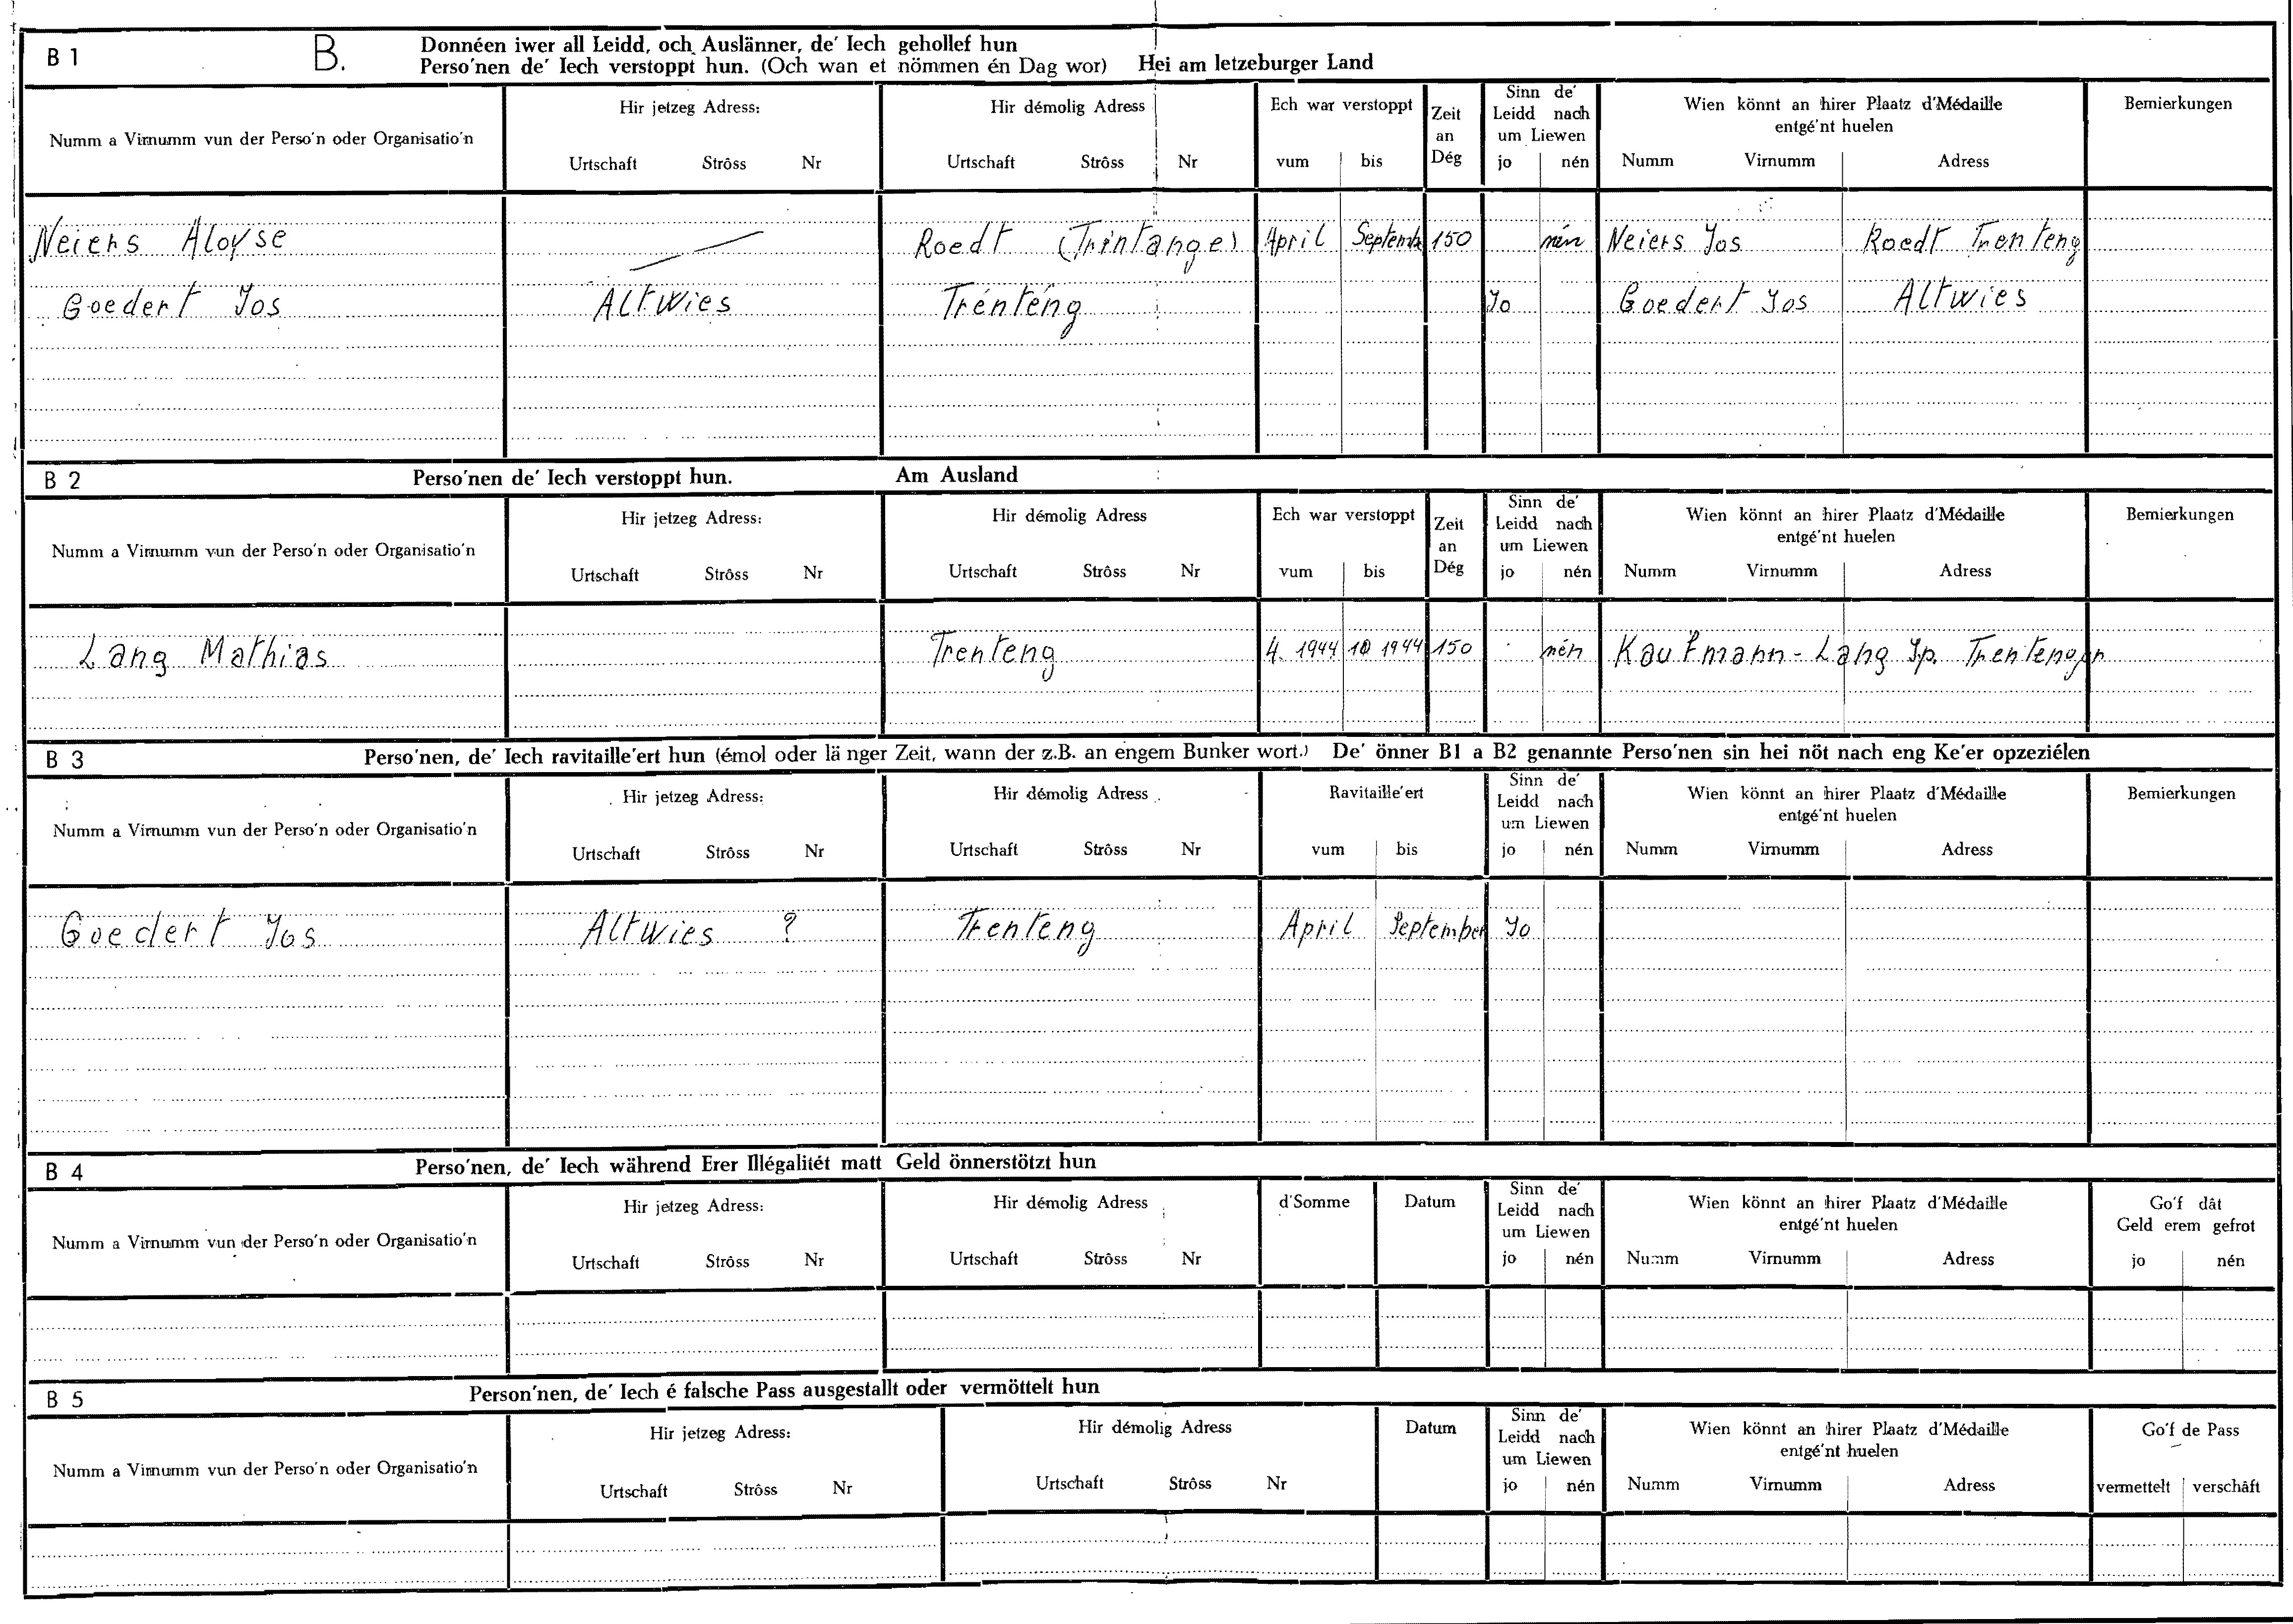 B 1 B. Donnéen iwer all Leidd, och Auslänner, de' Iech gehollef hun
Perso'nen de' Iech verstoppt hun. (Och wan et nömmen én Dag wor) Hei am letzeburger Land
Numm a Virnumm vun der Perso'n oder Organisatio'n
Hir jetzeg Adress:
Urtschaft Strôss Nr
Hir démolig Adress
Urtschaft Strôss Nr
Ech war verstoppt
vum bis
Zeit
an
Dég
Sinn de'
Leidd nach
um Liewen
jo nén
Wien könnt an hirer Plaatz d'Médaille
entgé'nt huelen
Numm Virnumm Adress
Bemierkungen
Neiers Aloyse Roedt (Trintange) April Septemb 150 nén Neiers Jos Roedt Trenteng
Goedert Jos Altwies Trénténg Jo Goedert Jos Altwies
B 2 Perso'nen de' Iech verstoppt hun. Am Ausland
Numm a Virnumm vun der Perso'n oder Organisatio'n
Hir jetzeg Adress:
Urtschaft Strôss Nr
Hir démolig Adress
Urtschaft Strôss Nr
Ech war verstoppt
vum bis
Zeit
an
Dég
Sinn de'
Leidd nach
um Liewen
jo nén
Wien könnt an hirer Plaatz d'Médaille
entgé'nt huelen
Numm Virnumm Adress
Bemierkungen
Lang Mathias Trenteng 4. 1944 10 1944 150 nén Kaufmann - Lang Jp. Trentengen
B 3 Perso'nen, de' Iech ravitaille'ert hun (émol oder länger Zeit, wann der z.B. an engem Bunker wort.) De' önner B1 a B2 genannte Perso'nen sin hei nöt nach eng Ke'er opzeziélen
Numm a Virnumm vun der Perso'n oder Organisatio'n
Hir jetzeg Adress:
Urtschaft Strôss Nr
Hir démolig Adress
Urtschaft Strôss Nr
Ravitaille'ert
vum bis
Sinn de'
Leidd nach
um Liewen
jo nén
Wien könnt an hirer Plaatz d'Médaille
entgé'nt huelen
Numm Virnumm Adress
Bemierkungen
Goedert Jos Altwies ? Trenteng April September Jo
B 4 Perso'nen, de' Iech während Erer Illégalitét matt Geld önnerstötzt hun
Numm a Virnumm vun der Perso'n oder Organisatio'n
Hir jetzeg Adress:
Urtschaft Strôss Nr
Hir démolig Adress
Urtschaft Strôss Nr
d'Somme
Datum
Sinn de'
Leidd nach
um Liewen
jo nén
Wien könnt an hirer Plaatz d'Médaille
entgé'nt huelen
Numm Virnumm Adress
Go'f dât
Geld erem gefrot
jo nén
B 5 Person'nen, de' Iech é falsche Pass ausgestallt oder vermöttelt hun
Numm a Virnumm vun der Perso'n oder Organisatio'n
Hir jetzeg Adress:
Urtschaft Strôss Nr
Hir démolig Adress
Urtschaft Strôss Nr
Datum
Sinn de'
Leidd nach
um Liewen
jo nén
Wien könnt an hirer Plaatz d'Médaille
entgé'nt huelen
Numm Virnumm Adress
Go'f de Pass
vermettelt verschâft